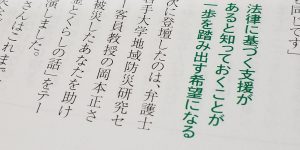 同じです」
法律に基づく支援が
あると知っておくことが
一歩を踏み出す希望になる
次に登壇したのは、弁護士
手大学地域防災研究セ
ー客員教授の岡本正さ
被災したあなたを助け
くらしの話」をテー
演しました。
さんはこれま